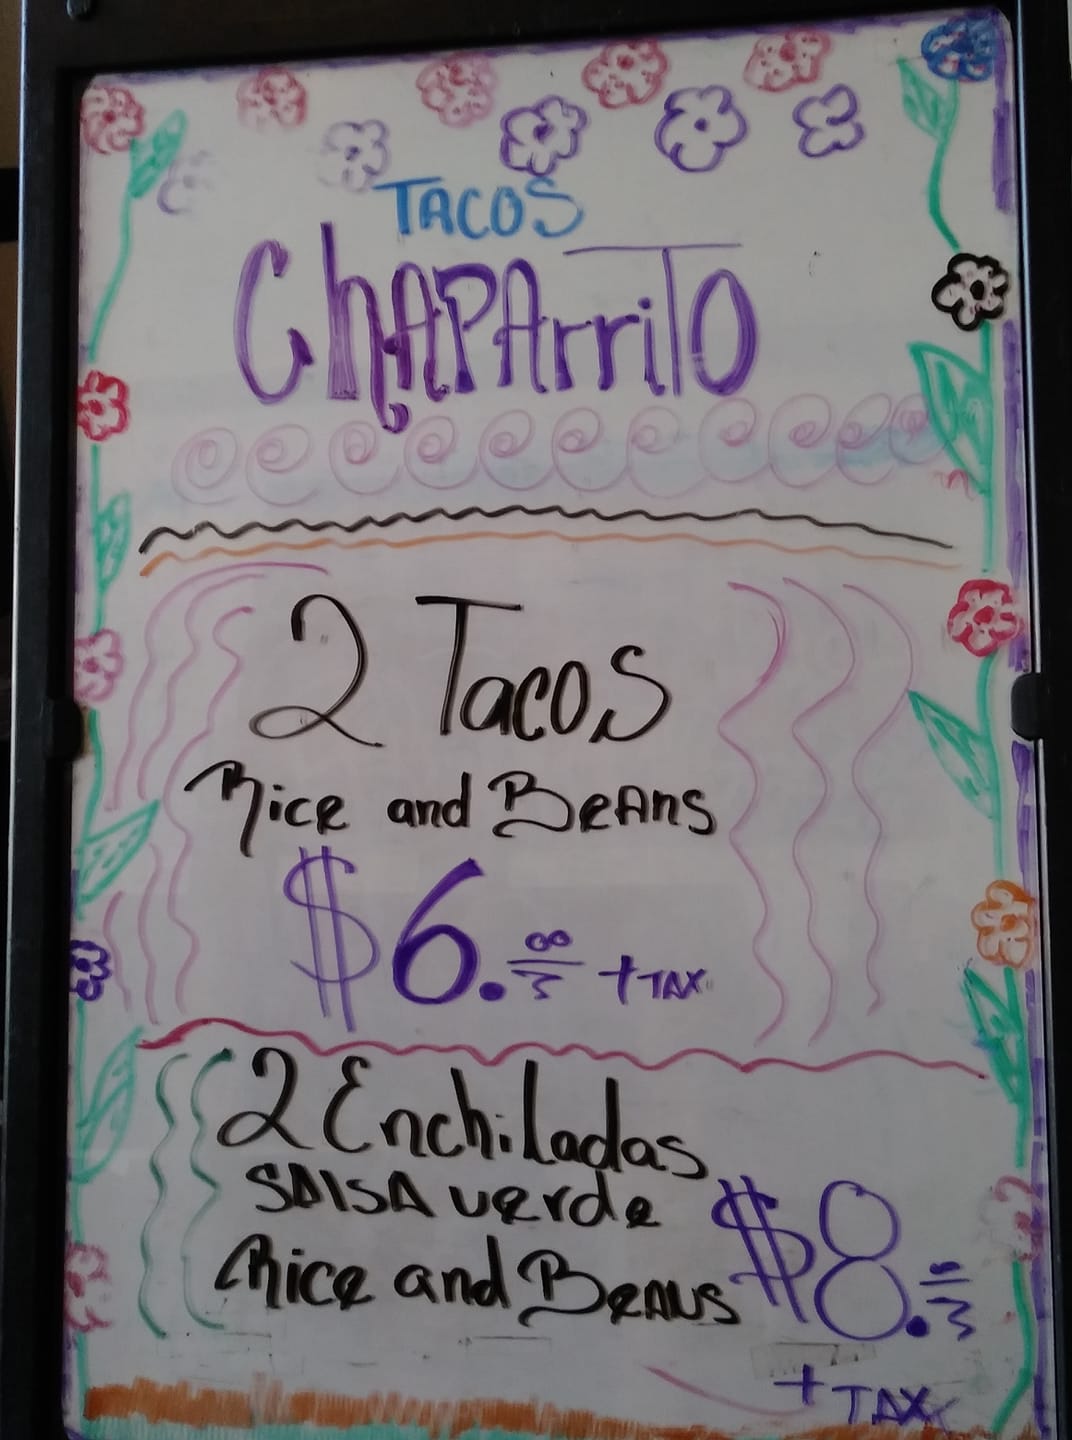 TACOS
ChAPArriTO
2 Tacos
Rice and BeAns
$6.00 +TAX
2 Enchiladas
SAlSA verde
Rice and BeANS $8.00
+ TAX